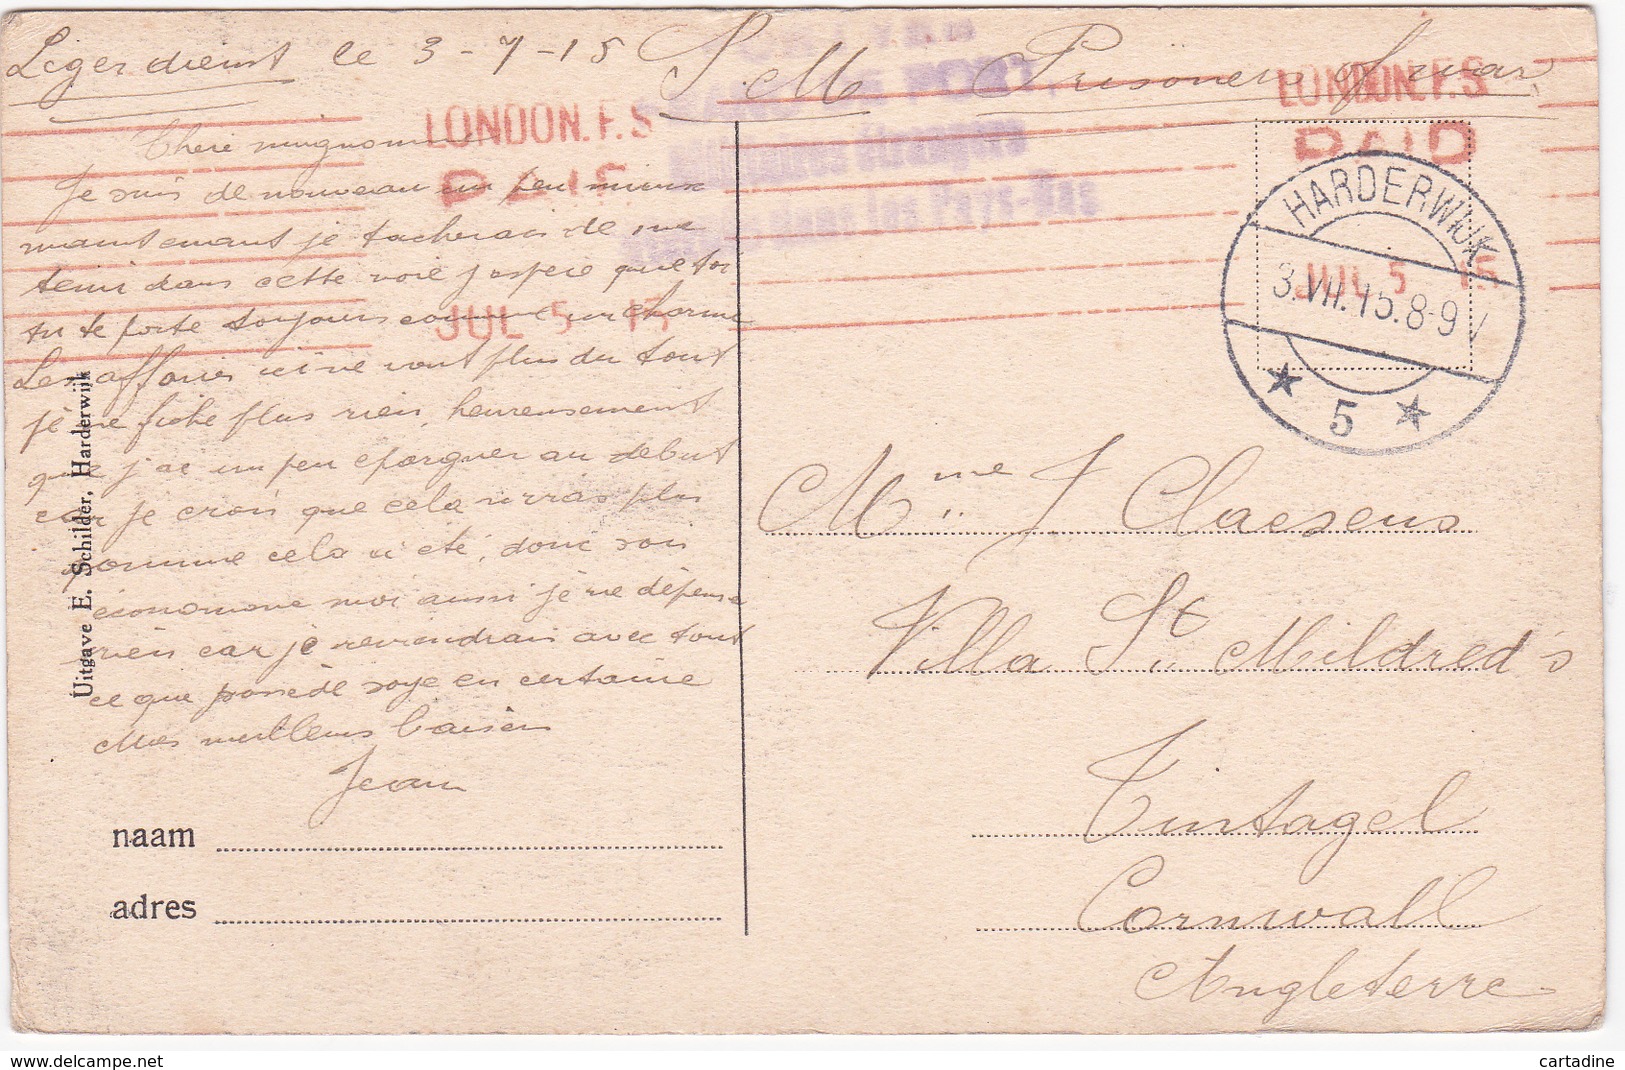 Legerdienst le 3-7-15 S.M. Prisoner of war
Chere mignonne
Je suis de nouveau un peu mieux
maintenant je tacherai de me
tenir dans cette voie j'espère que toi
tu te porte toujours comme un charme
Les affaires ici ne vont plus du tout
je ne fiche plus rien, heureusement
que j'ai un peu eparguer au debut
car je crois que cela n'iras plus
comme cela a été, donc sois
économone moi aussi je ne dépense
rien car je reviendrais avec tout
ce que possède soye en certaine
Mes meilleurs baisers
Jean
naam
adres
Uitgave E. Schilder, Harderwijk
LONDON.F.S
PAID
JUL 5 15
FRANC DE PORT
Militaires étrangers
dans les Pays-Bas
LONDON.F.S
PAID
JUL 5 15
HARDERWIJK
3.VII.15.8-9V
5
Mme J Claesens
Villa St Mildred's
Tintagel
Cornwall
Angleterre
cartadine